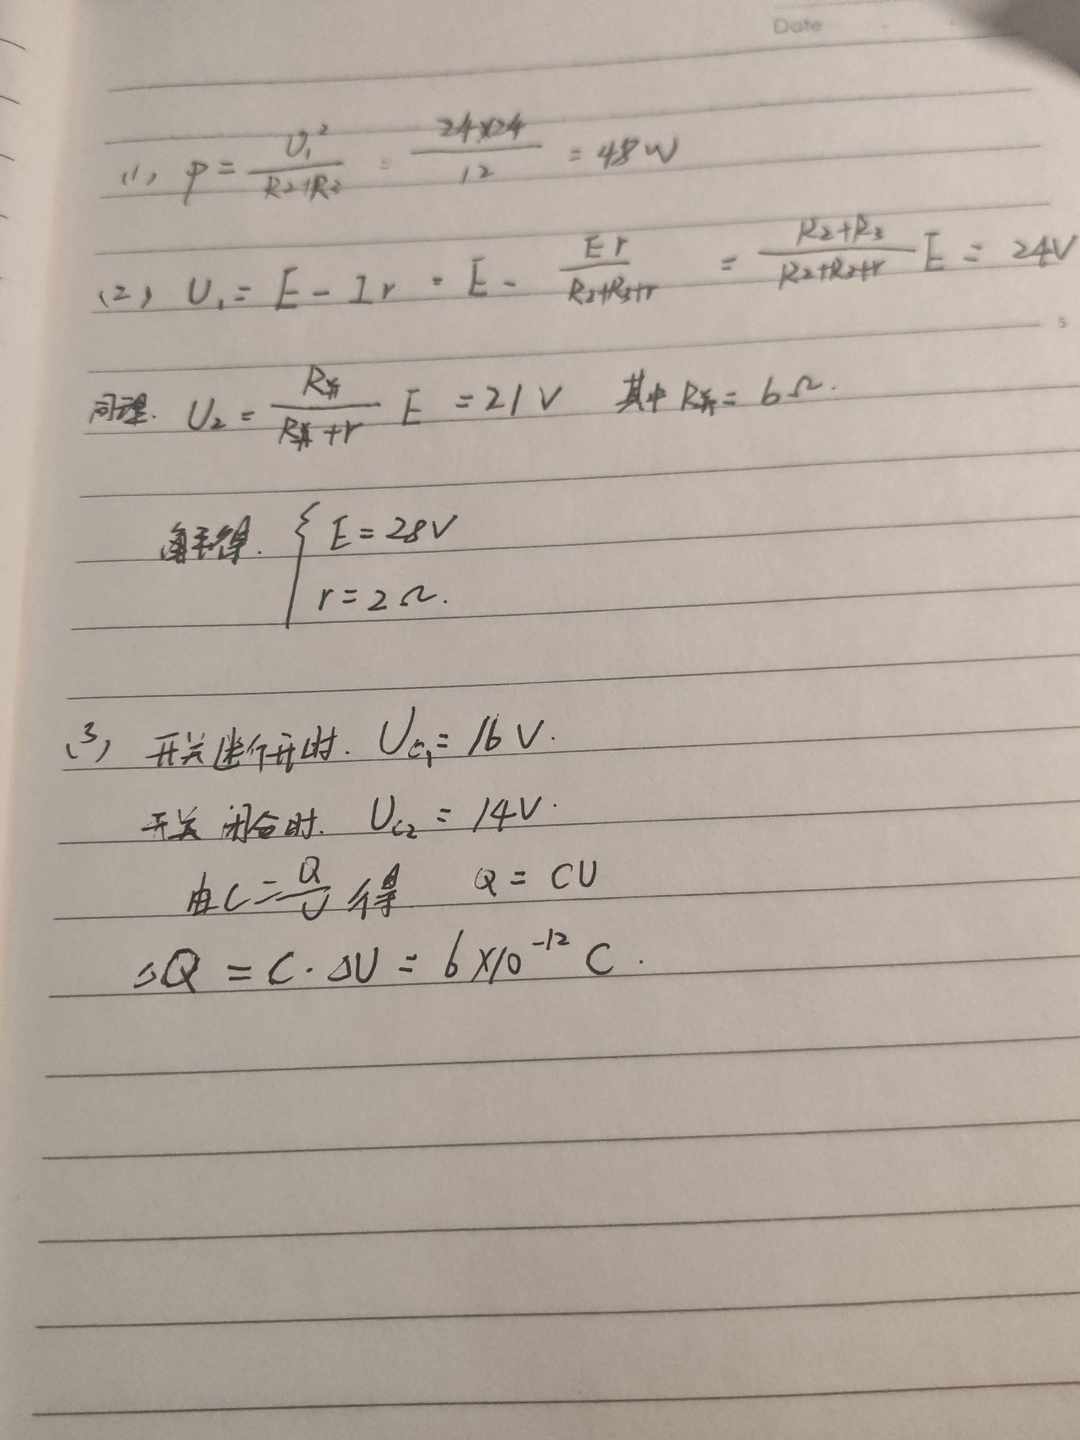 Date
(1) P = U₁²/(R₂+R₃) = 24×24/12 = 48W
(2) U₁ = E - Ir = E - Er/(R₂+R₃+r) = (R₂+R₃)/(R₂+R₃+r) E = 24V
同理. U₂ = R并/(R并+r) E = 21V 其中 R并 = 6Ω.
解得. { E = 28V
r = 2Ω.
(3) 开关断开时. Uc₁ = 16V.
开关闭合时. Uc₂ = 14V.
由 C = Q/U 得 Q = CU
△Q = C·△U = 6×10⁻¹² C.